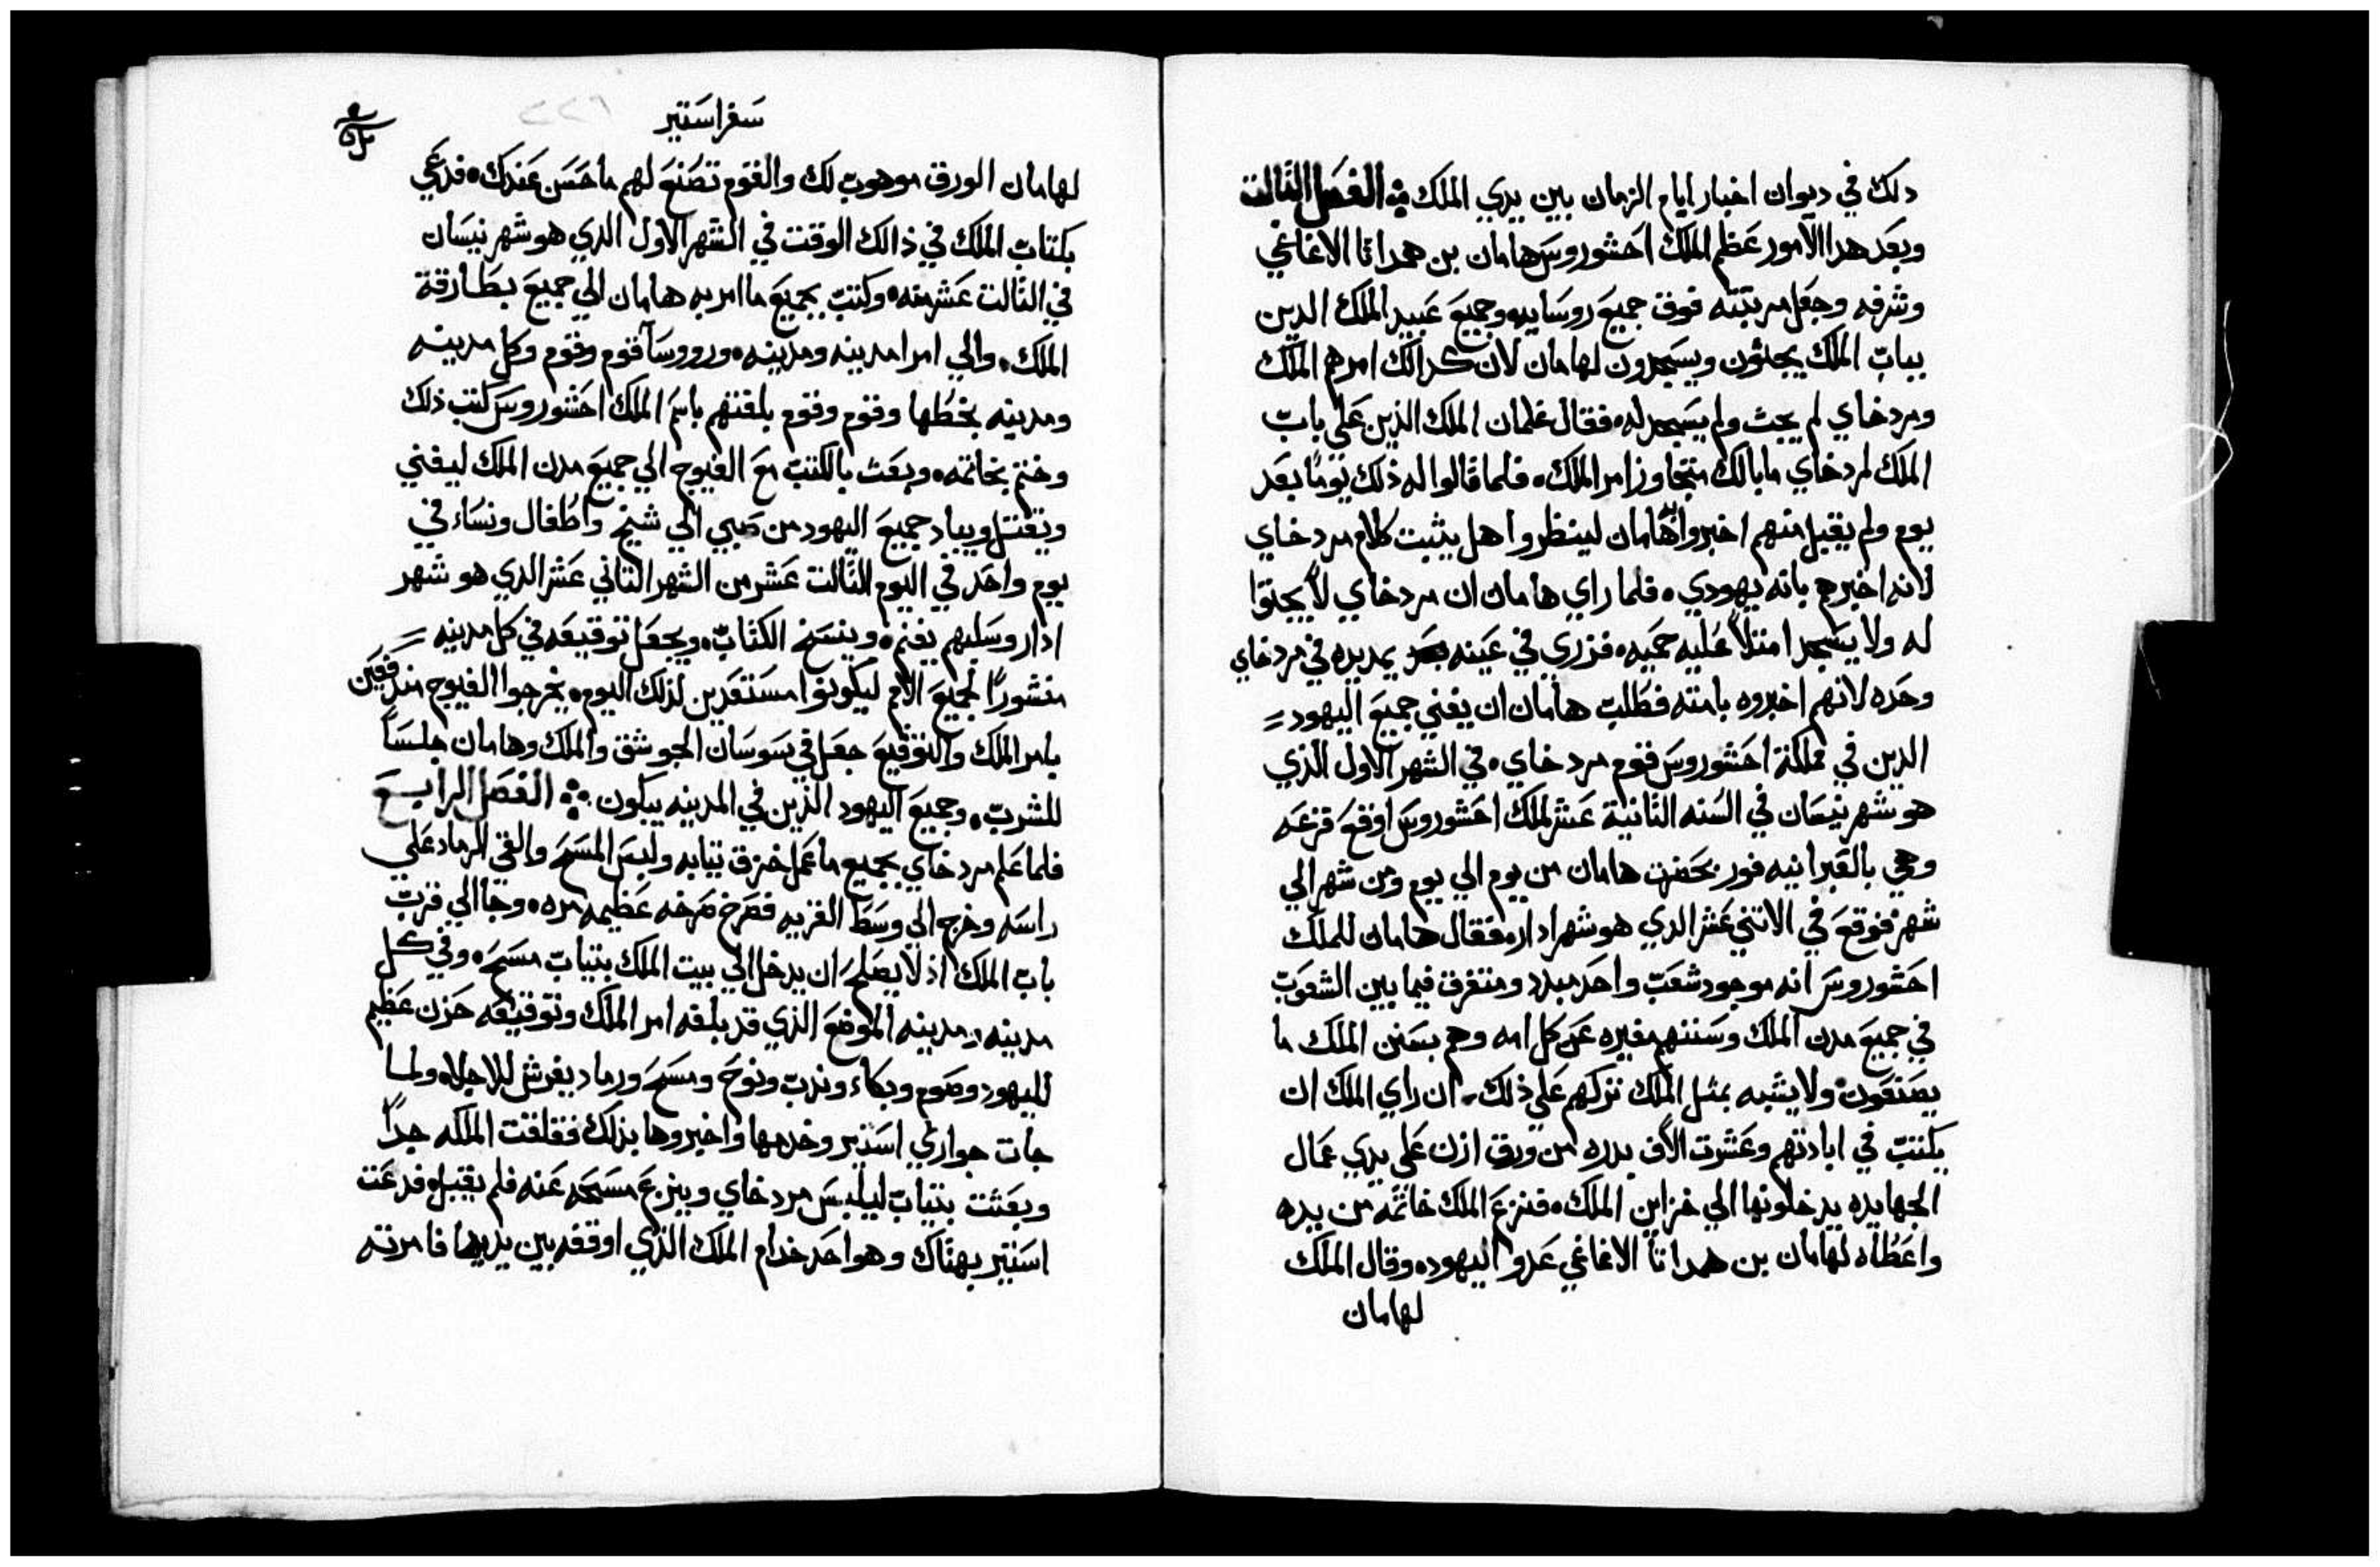 دلك في ديوان اخبار ايام الزمان بين يدي الملك الفصل الثالت
وبعد هدا الامور عظم الملك احشوروس هامان بن همداثا الاغاغي
وشرفه وجعل مرتبته فوق جميع روسايه وجميع عبيد الملك الدين
بباب الملك يجثون ويسجدون لهامان لان كدالك امرهم الملك
ومردخاي لم يجث ولم يسجد له فقال غلمان الملك الذين علي باب
الملك لمردخاي ما بالك متجاوز امر الملك فلما قالوا له ذلك يوما بعد
يوم ولم يقبل منهم اخبروا هامان لينظروا هل يثبت كلام مردخاي
لانه اخبرهم بانه يهودي فلما راي هامان ان مردخاي لا يجثوا
له ولا يسجد امتلا عليه حميه فزري في عينه يمد يده في مردخاي
وحده لانهم اخبروه بامته فطلب هامان ان يفني جميع اليهود
الدين في مملكة احشوروس قوم مردخاي في الشهر الاول الذي
هو شهر نيسان في السنه الثانية عشر لملك احشوروس اوقع قرعه
وهي بالعبرانيه فور بحضرت هامان من يوم الي يوم ومن شهر الي
شهر فوقع في الاتني عشر الدي هو شهر ادار فقال هامان للملك
احشوروس انه موجود شعب واحد مبدد ومتفرق فيما بين الشعوب
في جميع مدن الملك وسننهم مغيره عن كل امه وهم بسنن الملك ما
يصنعون ولا يشبه بمثل الملك تركهم علي ذلك ان راي الملك ان
يكتب في ابادتهم وعشرت الاف بدره من ورق ازن علي يدي عمال
الجهابده يدخلونها الي خزاين الملك فنزع الملك خاتمه من يده
واعطاه لهامان بن همداثا الاغاغي عدو اليهود وقال الملك
لهامان
سفر استير
لهامان الورق موهوب لك والقوم تصنع لهم ما حسن عندك فدعي
بكتاب الملك في ذالك الوقت في الشهر الاول الدي هو شهر نيسان
في الثالت عشر منه وكتب بجميع ما امر به هامان الي جميع بطارقة
الملك والي امرا مدينه ومدينه وروسا قوم وقوم وكل مدينه
ومدينه بخطها وقوم وقوم بلغتهم باسم الملك احشوروس كتب ذلك
وختم بخاتمه وبعث بالكتب مع الفيوج الي جميع مدن الملك ليفني
ويقتل ويباد جميع اليهود من صبي الي شيخ واطفال ونساء في
يوم واحد في اليوم الثالت عشر من الشهر الثاني عشر الدي هو شهر
ادار وسلبهم يغنم وينسخ الكتاب ويجعل توقيعه في كل مدينه
منشورا لجميع الامم ليكونوا مستعدين لذلك اليوم يخرجوا الفيوج مندفعين
بامر الملك والتوقيع جعل في سوسان الجوشق والملك وهامان جلسا
للشرب وجميع اليهود الذين في المدينه يبكون الفصل الرابع
فلما علم مردخاي بجميع ما عمل خرق تيابه ولبس المسح والقي الرماد علي
راسه وخرج الي وسط القريه فصرخ صرخه عظيمه مره وجا الي قرب
باب الملك اذ لا يصلح ان يدخل الي بيت الملك بتياب مسح وفي كل
مدينه ومدينه الموضع الذي قد بلغه امر الملك وتوقيعه حزن عظيم
لليهود وصوم وبكاء وندب ونوح ومسح ورماد يفرش للاجلاه ولما
جات جواري استير وخدمها واخبروها بذلك فقلقت الملكه جدا
وبعثت بتياب ليلبس مردخاي وينزع مسحه عنه فلم يقبل فدعت
استير بهتاك وهو احد خدام الملك الذي اوقفه بين يديها فامرته